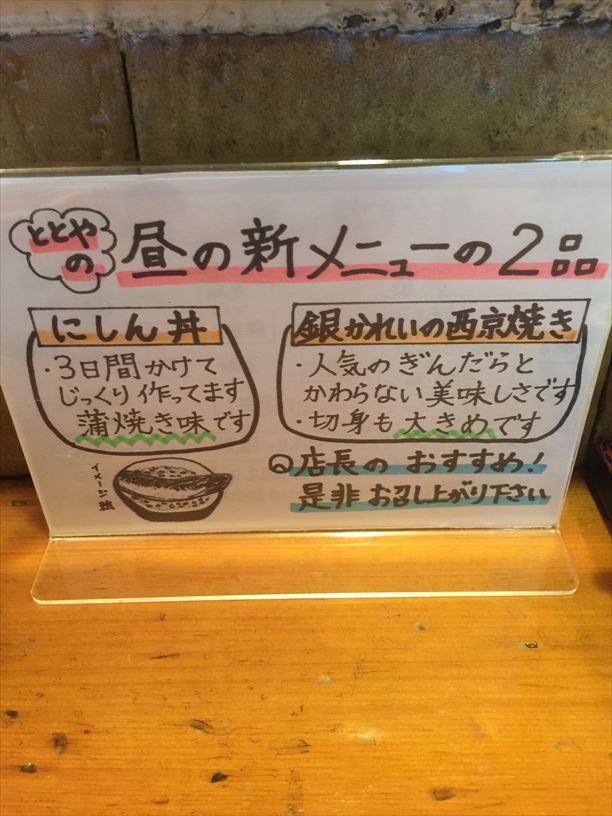 ととやの
昼の新メニューの2品
にしん丼
・3日間かけて
じっくり作ってます
蒲焼き味です
イメージ絵
銀かれいの西京焼き
・人気のぎんだらと
かわらない美味しさです
・切身も大きめです
店長のおすすめ!
是非お召し上がり下さい